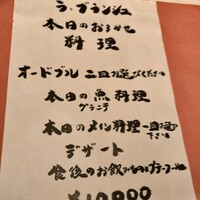 ラ・ブランシュ
本日のおまかせ
料理
オードブル 二皿お選びください
本日の魚料理
グラニテ
本日のメイン料理 一皿お選び
下さい
デザート
食後のお飲みもの
¥10,000